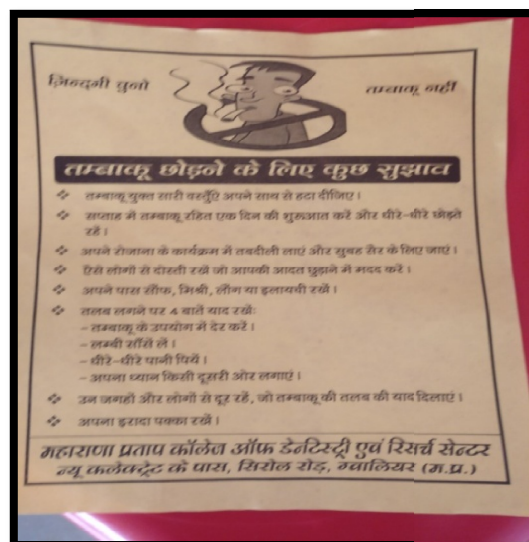 ज़िन्दगी चुनो
तम्बाकू नहीं
तम्बाकू छोड़ने के लिए कुछ सुझाव
❖ तम्बाकू युक्त सारी वस्तुएँ अपने साथ से हटा दीजिए।
❖ सप्ताह में तम्बाकू रहित एक दिन की शुरूआत करें और धीरे-धीरे छोड़ते
रहें।
❖ अपने रोजाना के कार्यक्रम में तबदीली लाएं और सुबह सैर के लिए जाएं।
❖ ऐसे लोगों से दोस्ती रखें जो आपकी आदत छुड़ाने में मदद करें।
❖ अपने पास सौंफ, मिश्री, लौंग या इलायची रखें।
❖ तलब लगने पर 4 बातें याद रखें:
- तम्बाकू के उपयोग में देर करें।
- लम्बी साँसें लें।
- धीरे-धीरे पानी पियें।
- अपना ध्यान किसी दूसरी ओर लगाएं।
❖ उन जगहों और लोगों से दूर रहें, जो तम्बाकू की तलब की याद दिलाएं।
❖ अपना इरादा पक्का रखें।
महाराणा प्रताप कॉलेज ऑफ डेन्टिस्ट्री एवं रिसर्च सेन्टर
न्यू कलेक्ट्रेट के पास, सिरोल रोड़, ग्वालियर (म.प्र.)